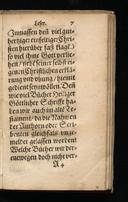 Leser. 7
Inmassen deß viel gut-
hertziger einfeltiger Chri-
sten hierüber fast klagē/
so viel ihme Gott verlie-
hen/ nebē seiner selbst ei-
genen Christlichen erklä-
rung vnd vbung / hiemit
gedienet seyn wöllen. Deß
wie viel Bücher Heiliger
Göttlicher Schrifft ha-
ben wir auch im alte Te-
stament/ da die Nahmen
der Authorn oder Scri-
benten gleichfals vnge-
meldet gelassen werden?
Welche Bücher wir der-
enwegen doch nicht ver-
A 4